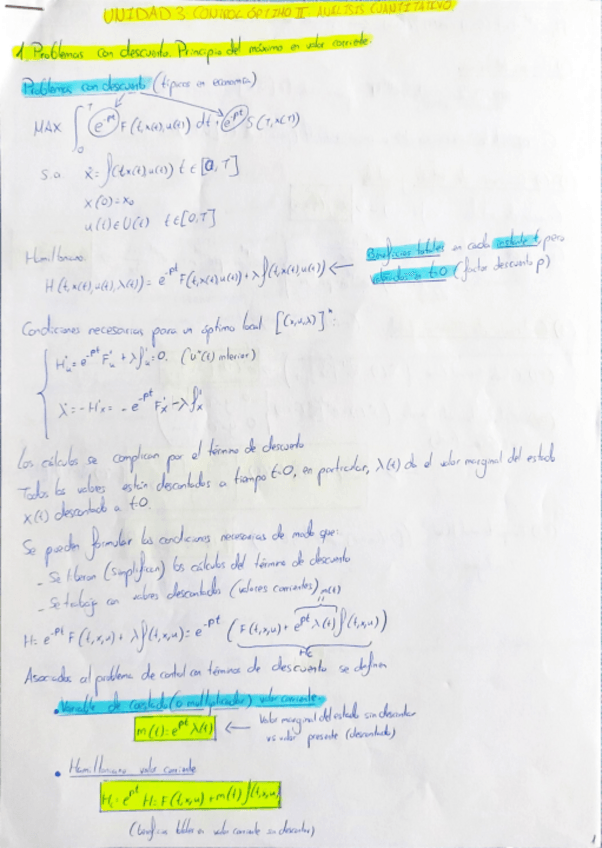 UNIDAD 3: CONTROL ÓPTIMO II: ANÁLISIS CUANTITATIVO
1. Problemas con descuento. Principio del máximo en valor corriente.
Problemas con descuento (típicos en economía)
MAX ∫₀ᵀ e^-ρt F(t,x(t),u(t)) dt + e^-ρt S(T,x(T))
s.a ẋ = f(t,x(t),u(t)) t ∈ [0,T]
x(0)=x₀
u(t) ∈ U(t) t ∈ [0,T]
Hamiltoniano
H(t,x(t),u(t),λ(t)) = e^-ρt F(t,x(t),u(t)) + λ f(t,x(t),u(t)) ←
Beneficios totales en cada instante t, pero
valorados en t=0 (factor descuento ρ)
Condiciones necesarias para un óptimo local [(x,u,λ)]*:
H'u = e^-ρt F'u + λ f'u = 0. (u*(t) interior)
λ̇ = -H'x = -e^-ρt F'x - λ f'x
Los cálculos se complican por el término de descuento
Todos los valores están descontados a tiempo t=0, en particular, λ(t) da el valor marginal del estado
x(t) descontado a t=0.
Se pueden formular las condiciones necesarias de modo que:
- Se liberan (simplifican) los cálculos del término de descuento
- Se trabaja con valores descontados (valores corrientes)
m(t)
H = e^-ρt F(t,x,u) + λ f(t,x,u) = e^-ρt (F(t,x,u) + e^ρt λ(t) f(t,x,u))
Hc
Asociados al problema de control con término de descuento se definen
• Variable de coestado (o multiplicador) valor corriente.
m(t) = e^ρt λ(t) ← Valor marginal del estado sin descontar
vs valor presente (descontado)
• Hamiltoniano valor corriente
Hc = e^ρt H = F(t,x,u) + m(t) f(t,x,u)
(beneficios totales en valor corriente sin descontar)
1